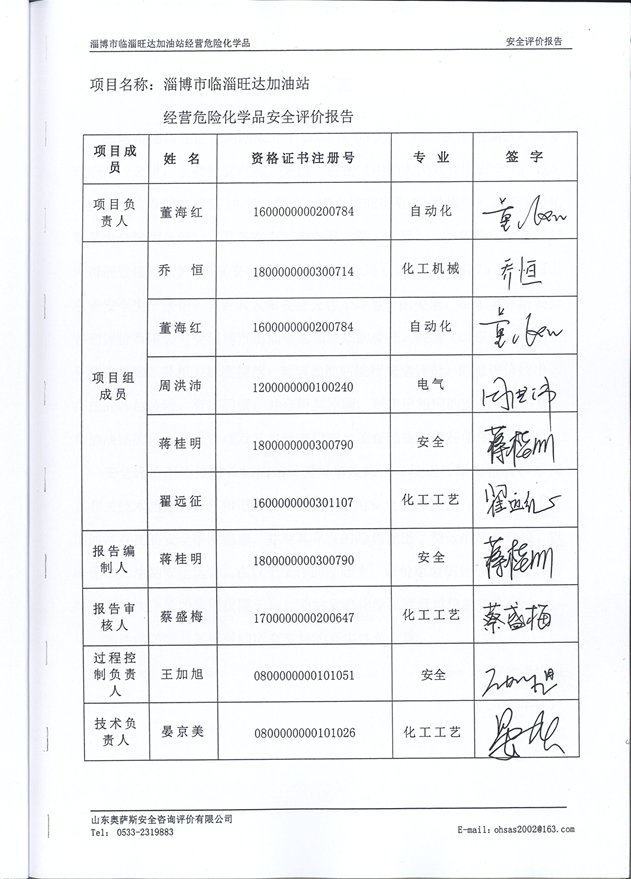 淄博市临淄旺达加油站经营危险化学品 安全评价报告
项目名称：淄博市临淄旺达加油站
经营危险化学品安全评价报告
项目成员 姓 名 资格证书注册号 专 业 签 字
项目负责人 董海红 1600000000200784 自动化
项目组成员 乔 恒 1800000000300714 化工机械 乔恒
董海红 1600000000200784 自动化
周洪沛 1200000000100240 电气 周洪沛
蒋桂明 1800000000300790 安全 蒋桂明
翟远征 1600000000301107 化工工艺 翟远征
报告编制人 蒋桂明 1800000000300790 安全 蒋桂明
报告审核人 蔡盛梅 1700000000200647 化工工艺 蔡盛梅
过程控制负责人 王加旭 0800000000101051 安全
技术负责人 晏京美 0800000000101026 化工工艺
山东奥萨斯安全咨询评价有限公司
Tel: 0533-2319883 E-mail:ohsas2002@163.com